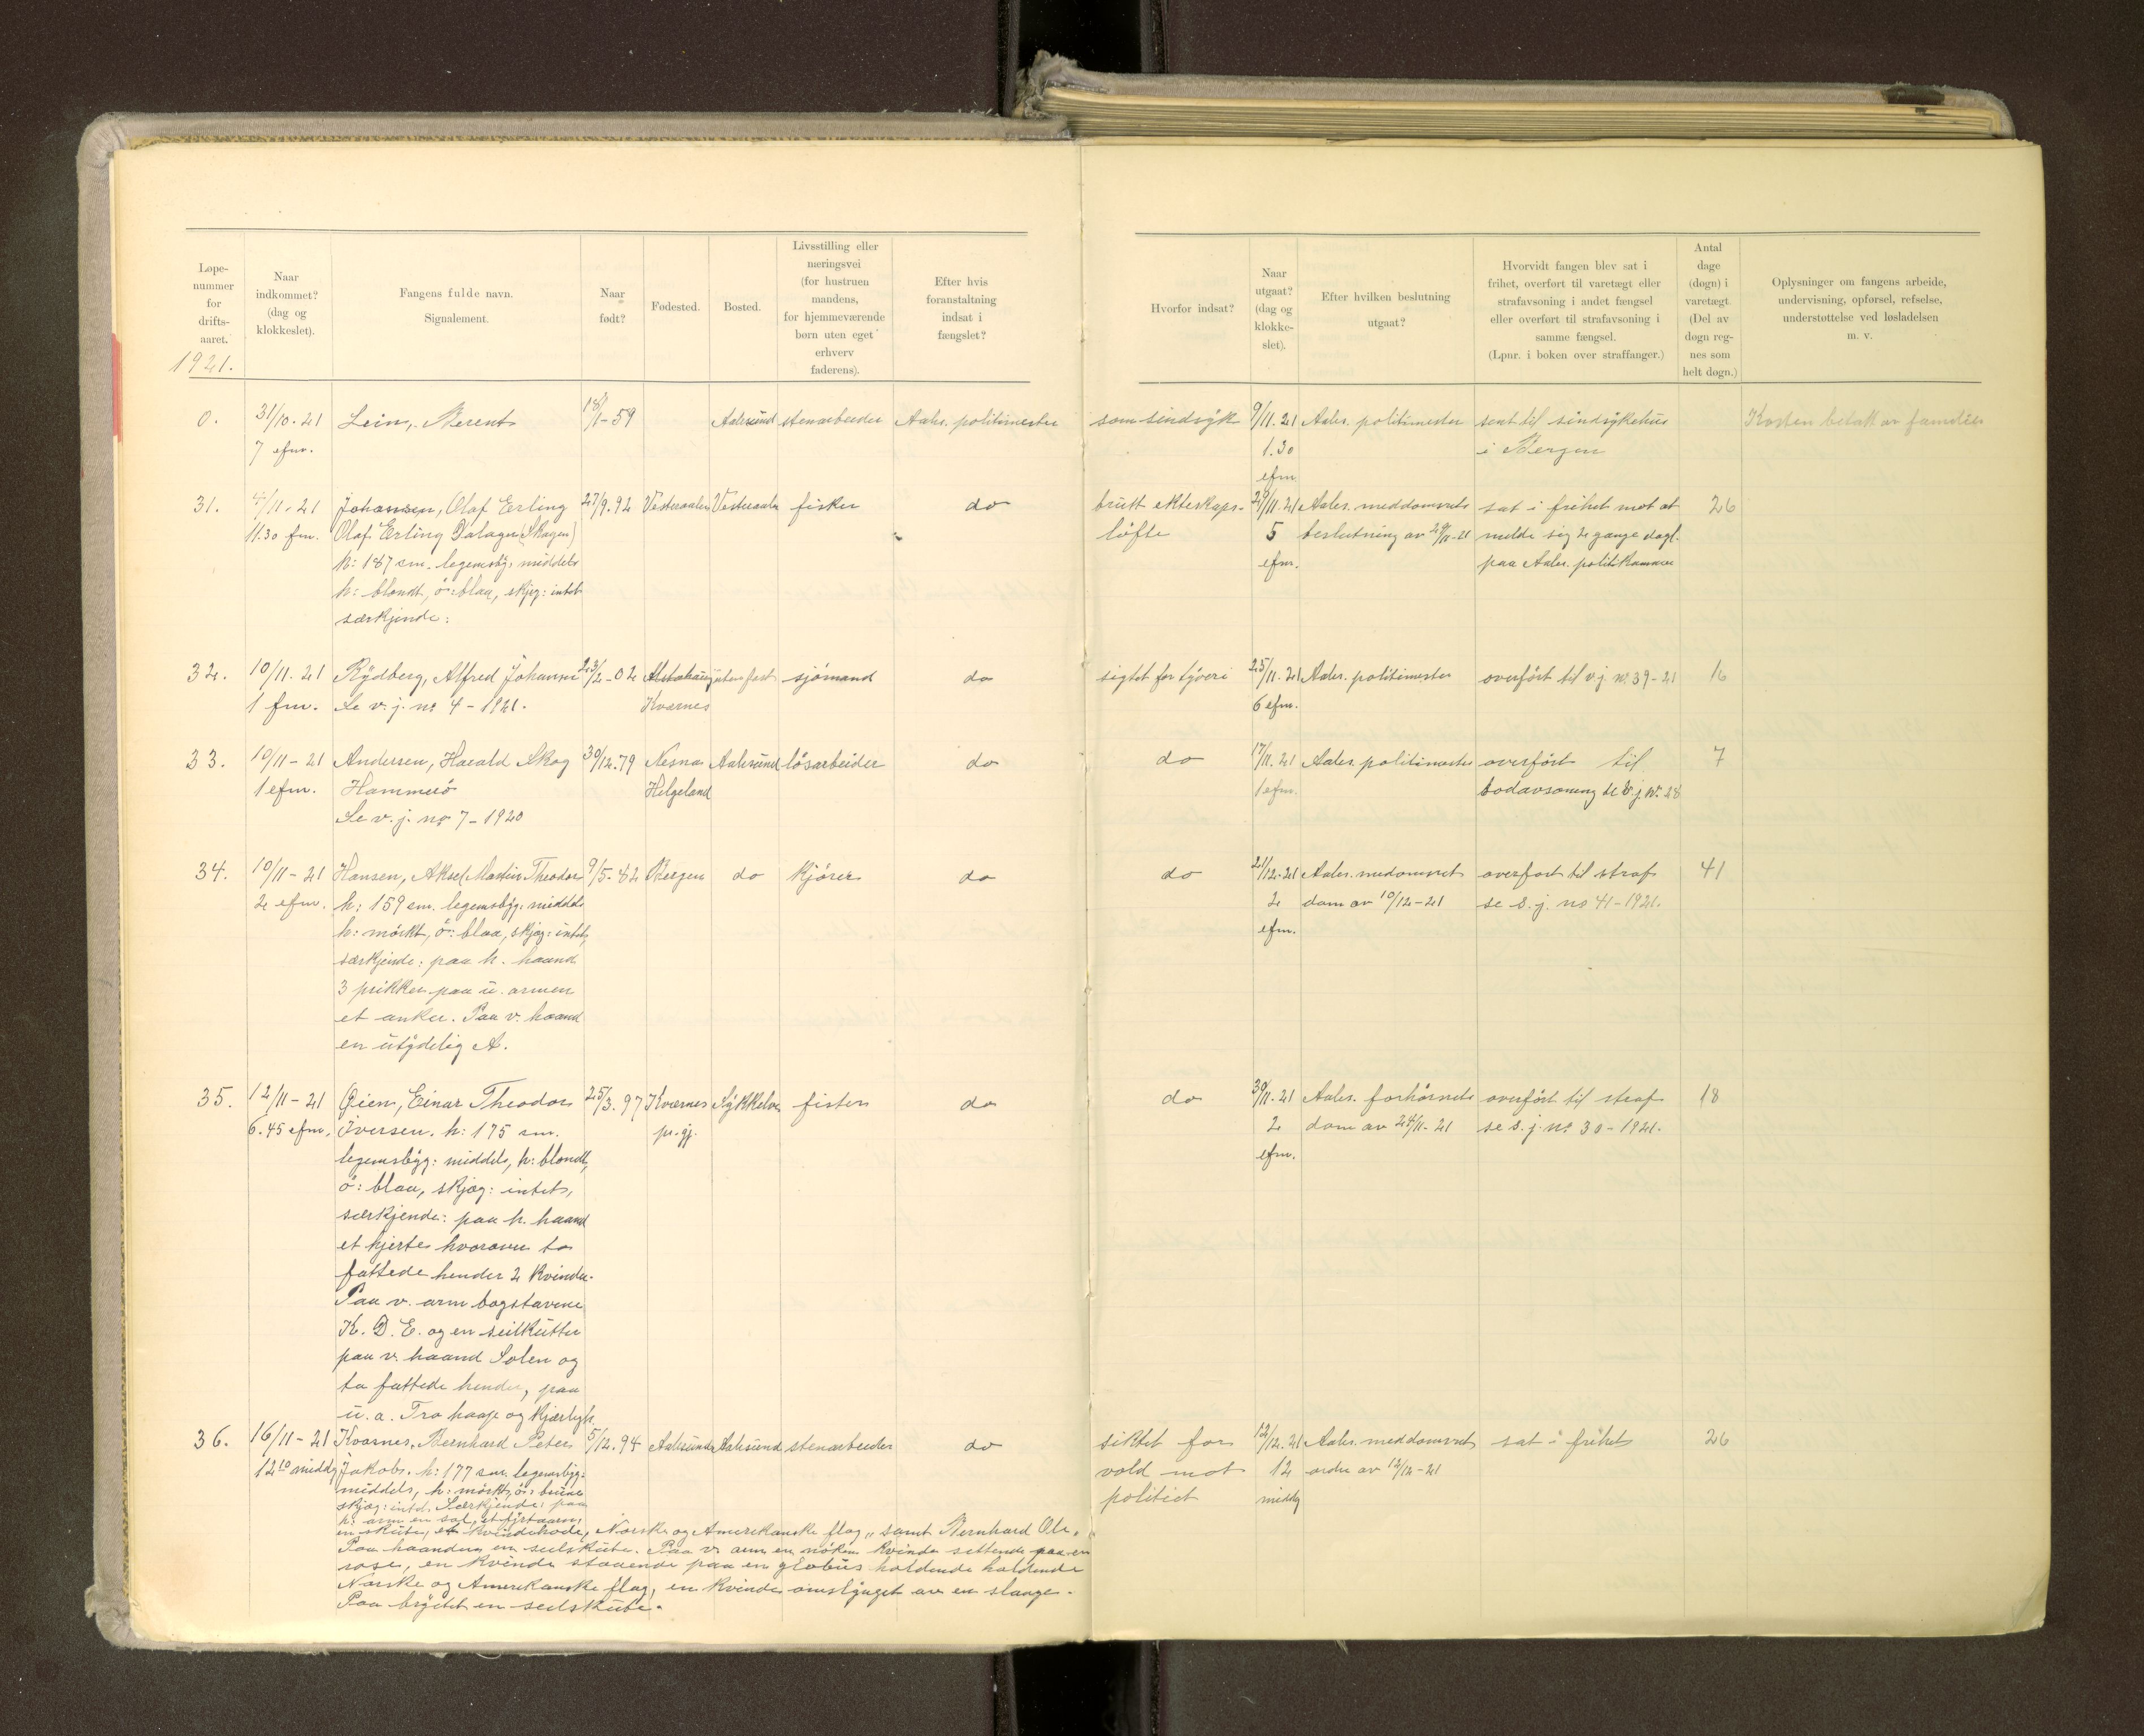 Løpe-
nummer
for
drifts-
aaret.
1921.
Naar
indkommet?
(dag og
klokkeslet).
Fangens fulde navn.
Signalement.
Naar
født?
Fødested.
Bosted.
Livsstilling eller
næringsvei
(for hustruen
mandens,
for hjemmeværende
børn uten eget
erhverv
faderens).
Efter hvis
foranstaltning
indsat i
fængslet?
Hvorfor indsat?
Naar
utgaat?
(dag og
klokke-
slet).
Efter hvilken beslutning
utgaat?
Hvorvidt fangen blev sat i
frihet, overført til varetægt eller
strafavsoning i andet fængsel
eller overført til strafavsoning i
samme fængsel.
(Lpnr. i boken over straffanger.)
Antal
dage
(døgn) i
varetægt.
(Del av
døgn reg-
nes som
helt døgn.)
Oplysninger om fangens arbeide,
undervisning, opførsel, refselse,
understøttelse ved løsladelsen
m. v.
0. 31/10-21 Lein, Berent 18/1-59 Aalesund stenarbeider Aales. politimester som sindsyk 9/11.21 Aales. politimester sent til sindsykehus Kosten betalt av familien
7 efm. 1.30 i Bergen
efm
31. 4/11-21 Johansen, Olaf Erling 27/9.92 Vesteraalen Vesteraalen fisker do brutt ekteskaps- 29/11.21 Aales. meddomsrets sat i frihet mot at 26
11.30 fm. Olaf Erling Dalager (Skagen) løfte 5 beslutning av 29/11-21 melde sig 2 gange dagl.
h: 187 sm. legemsbyg: middels efm. paa Aales. politikammer
h: blondt, ö: blaa, skjæg: intet
særkjende:
32. 10/11-21 Rydberg, Alfred Johannes 23/2-02 uten fast sjømand do sigtet for tyveri 25/11-21 Aales. politimester overført til v.j. no. 39-21 16
1 fm. Se v.j. no 4-1921. Kværnes 6 efm.
33. 10/11-21 Andersen, Harald Skog 30/12.79 Nesna Aalesund løsarbeider do do 17/11.21 Aales. politimester overført til 7
1 efm. Hammerö Helgeland 1 efm. bodavsoning se b.j. no. 28
Se v.j. no 7-1920
34. 10/11-21 Hansen, Aksel Martin Theodor 9/5-82 Bergen do kjører do do 21/12-21 Aales. medomsret overført til straf 41
2 efm. h: 159 sm. legemsbyg: middels 2 dom av 10/12-21 se s.j. no 41-1921.
h: mörkt, ö: blaa, skjæg: intet, efm.
særkjende: paa h. haand
3 prikker paa u. armen
et anker. Paa v. haand
en utydelig A.
35. 12/11-21 Øien, Einar Theodor 25/3.97 Kværnes fisker do do 30/11-21 Aales. forhørsrets overført til straf 18
6.45 efm. Iversen. h: 175 sm. pr. gj. 2 dom av 24/11-21 se s.j. no. 30-1921.
legemsbyg: middels, h: blondt, efm.
ö: blaa, skjæg: intet,
særkjende: paa h. haand
et hjerte hvorover to
fattede hender 2 kvinder.
Paa v. arm bogstavene
K. D. E. og en seilkutter
paa v. haand Solen og
to fattede hender, paa
u. a. Tro haap og kjærligh.
36. 16/11-21 Kvarnes, Bernhard Peter 5/12.94 Aalesund Aalesund stenarbeider do siktet for 12/12.21 Aales. meddomsret sat i frihet 26
12 10 middg Jakobs. h: 177 sm. legemsbyg: vold mot 12 ordre av 12/12-21
middels, h: mörkt, ö: brune politiet middg
skjæg: intet. Særkjende: paa
h: arm en sol, et fyrtaarn,
en skute, et kvindehode, Norske og Amerikanske flag, samt Bernhard Ole.
Paa haanden en seilskute. Paa v. arm en nöken kvinde sittende paa en
rose, en kvinde staaende paa en globus holdende holdende
Norske og Amerikanske flag, en kvinde omslynget av en slange.
Paa brystet en seilskute.